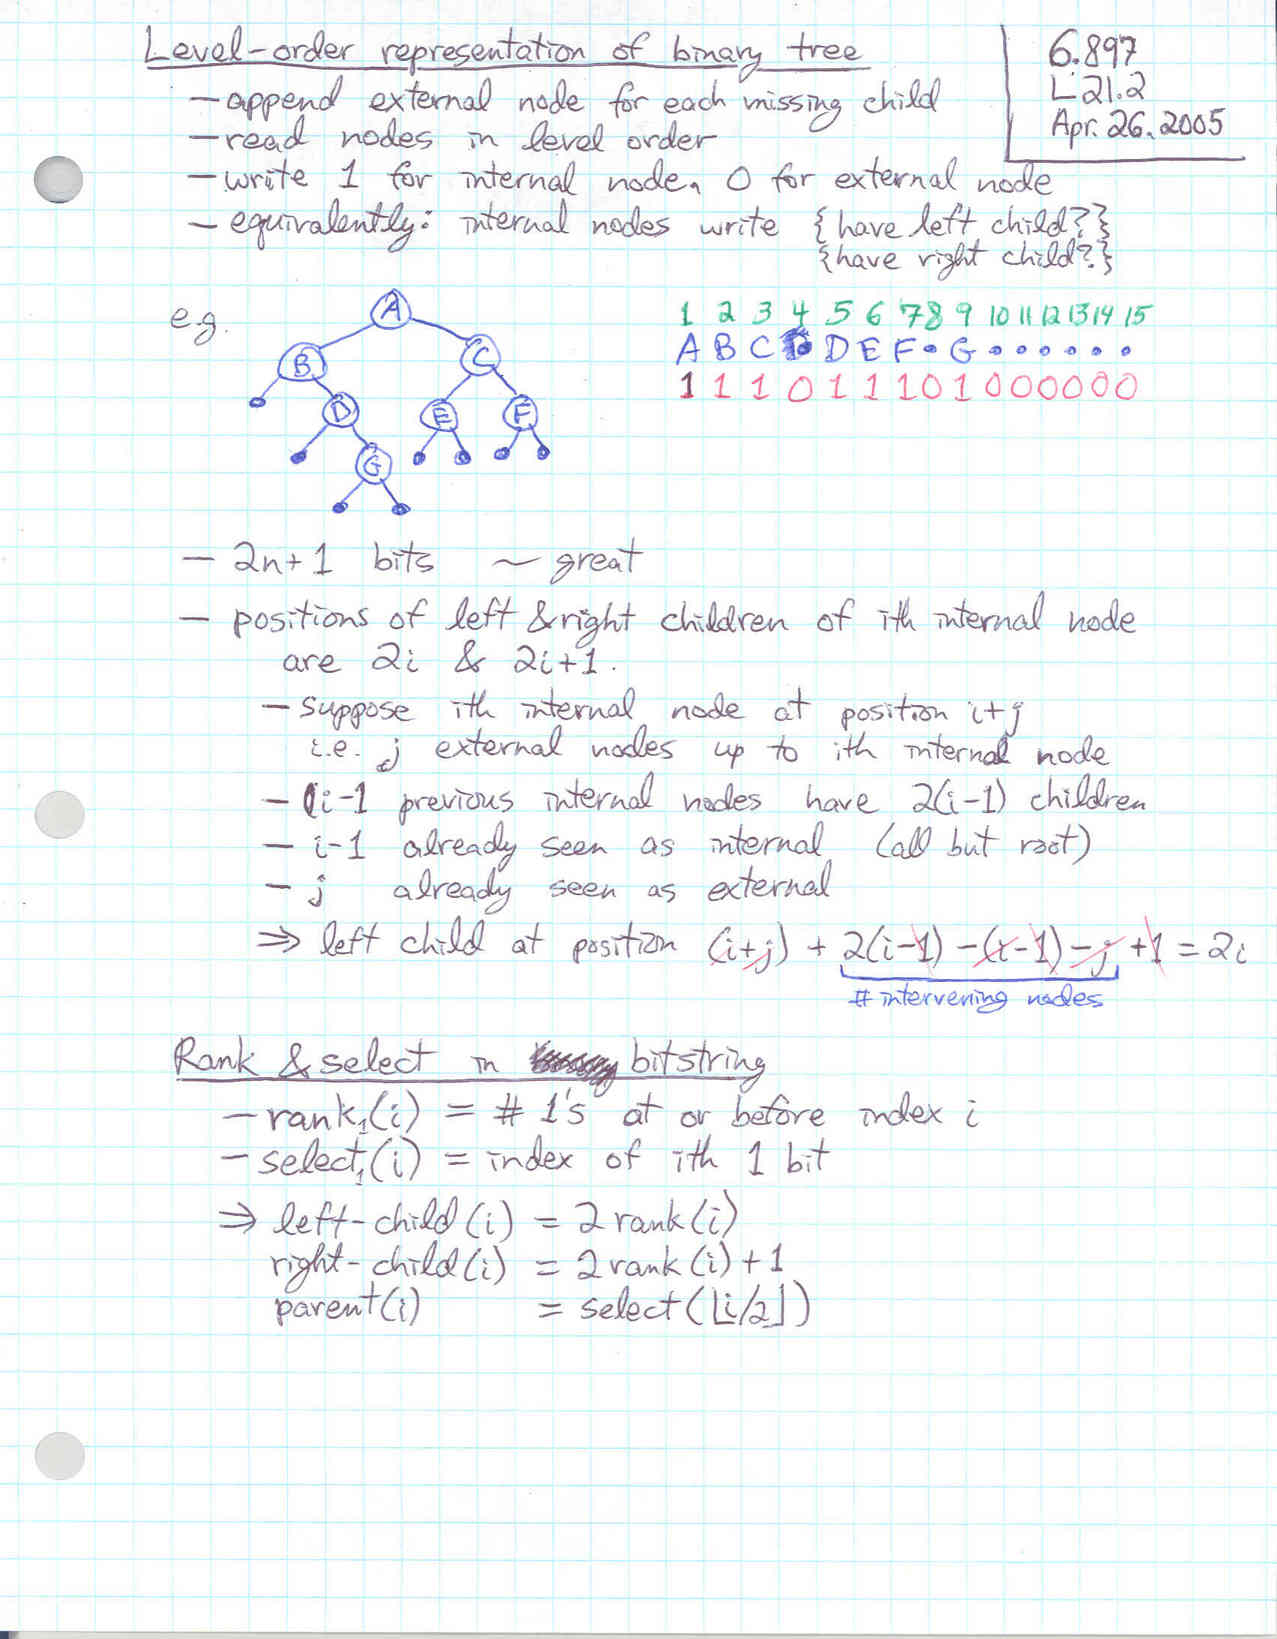 Level-order representation of binary tree
6.897
L21.2
Apr. 26, 2005
– append external node for each missing child
– read nodes in level order
– write 1 for internal node, 0 for external node
– equivalently: internal nodes write {have left child?}
{have right child?}
e.g.
A
B C
D E F
G
1 2 3 4 5 6 7 8 9 10 11 12 13 14 15
A B C • D E F • G • • • • • •
1 1 1 0 1 1 1 0 1 0 0 0 0 0 0
– 2n+1 bits ~ great
– positions of left & right children of ith internal node
are 2i & 2i+1.
– suppose ith internal node at position i+j
i.e. j external nodes up to ith internal node
– i-1 previous internal nodes have 2(i-1) children
– i-1 already seen as internal (all but root)
– j already seen as external
⇒ left child at position (i+j) + 2(i-1) - (i-1) - j + 1 = 2i
# intervening nodes
Rank & select in bitstring
– rank₁(i) = # 1's at or before index i
– select₁(i) = index of ith 1 bit
⇒ left-child(i) = 2 rank(i)
right-child(i) = 2 rank(i) + 1
parent(i) = select(⌊i/2⌋)